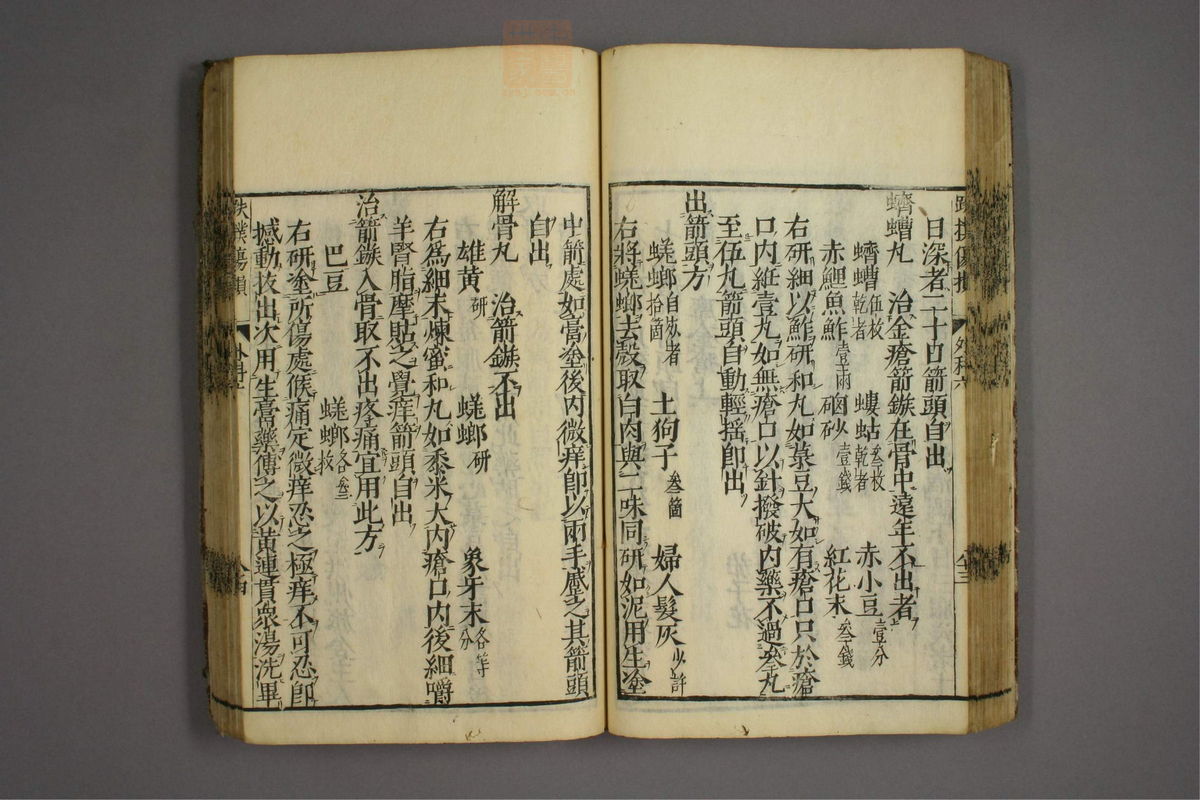 日深者二十日箭頭自出
蠐螬丸　治金瘡箭鏃在骨中遠年不出者
蠐螬伍枚乾者　螻蛄叄枚乾者　赤小豆壹分
赤鯉魚鮓壹兩　硇砂壹錢　紅花末叄錢
右研細以鮓研和丸如菉豆大如有瘡口只於瘡
口內絍壹丸如無瘡口以針撥破內藥不過叄丸
至伍丸箭頭自動輕揺即出
出箭頭方
蜣蜋自死者拾箇　土狗子叄箇　婦人髮灰少許
右將蜣蜋去殼取白肉與二味同研如泥用生塗
中箭處如膏塗後內微痒即以兩手蹙之其箭頭
自出
解骨丸　治箭鏃不出
雄黃研　蜣蜋研　象牙末各等分
右爲細末煉蜜和丸如黍米大內瘡口內後細嚼
羊腎脂摩貼之覺痒箭頭自出
治箭鏃入骨取不出疼痛宜用此方
巴豆　蜣蜋各叄枚
右研塗所傷處候痛定微痒忍之極痒不可忍即
撼動拔出次用生膏藥傅之以黃連貫衆湯洗畢